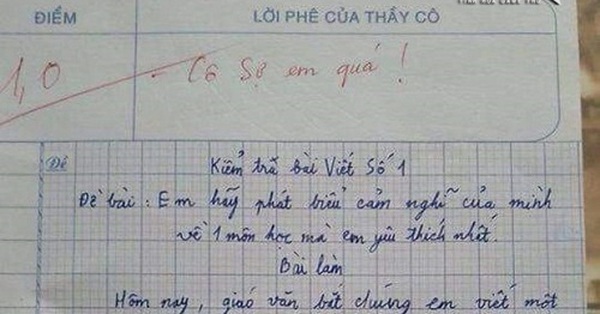 ĐIỂM
LỜI PHÊ CỦA THẦY CÔ
1,0
- Cô Sợ em quá !
Đề
Kiểm trã bài Viết Số 1
Đề bài : Em hãy phát biểu cảm nghĩ của mình
về 1 môn học mà em yêu thích nhất.
Bài làm
Hôm nay, giáo văn bắt chúng em viết một